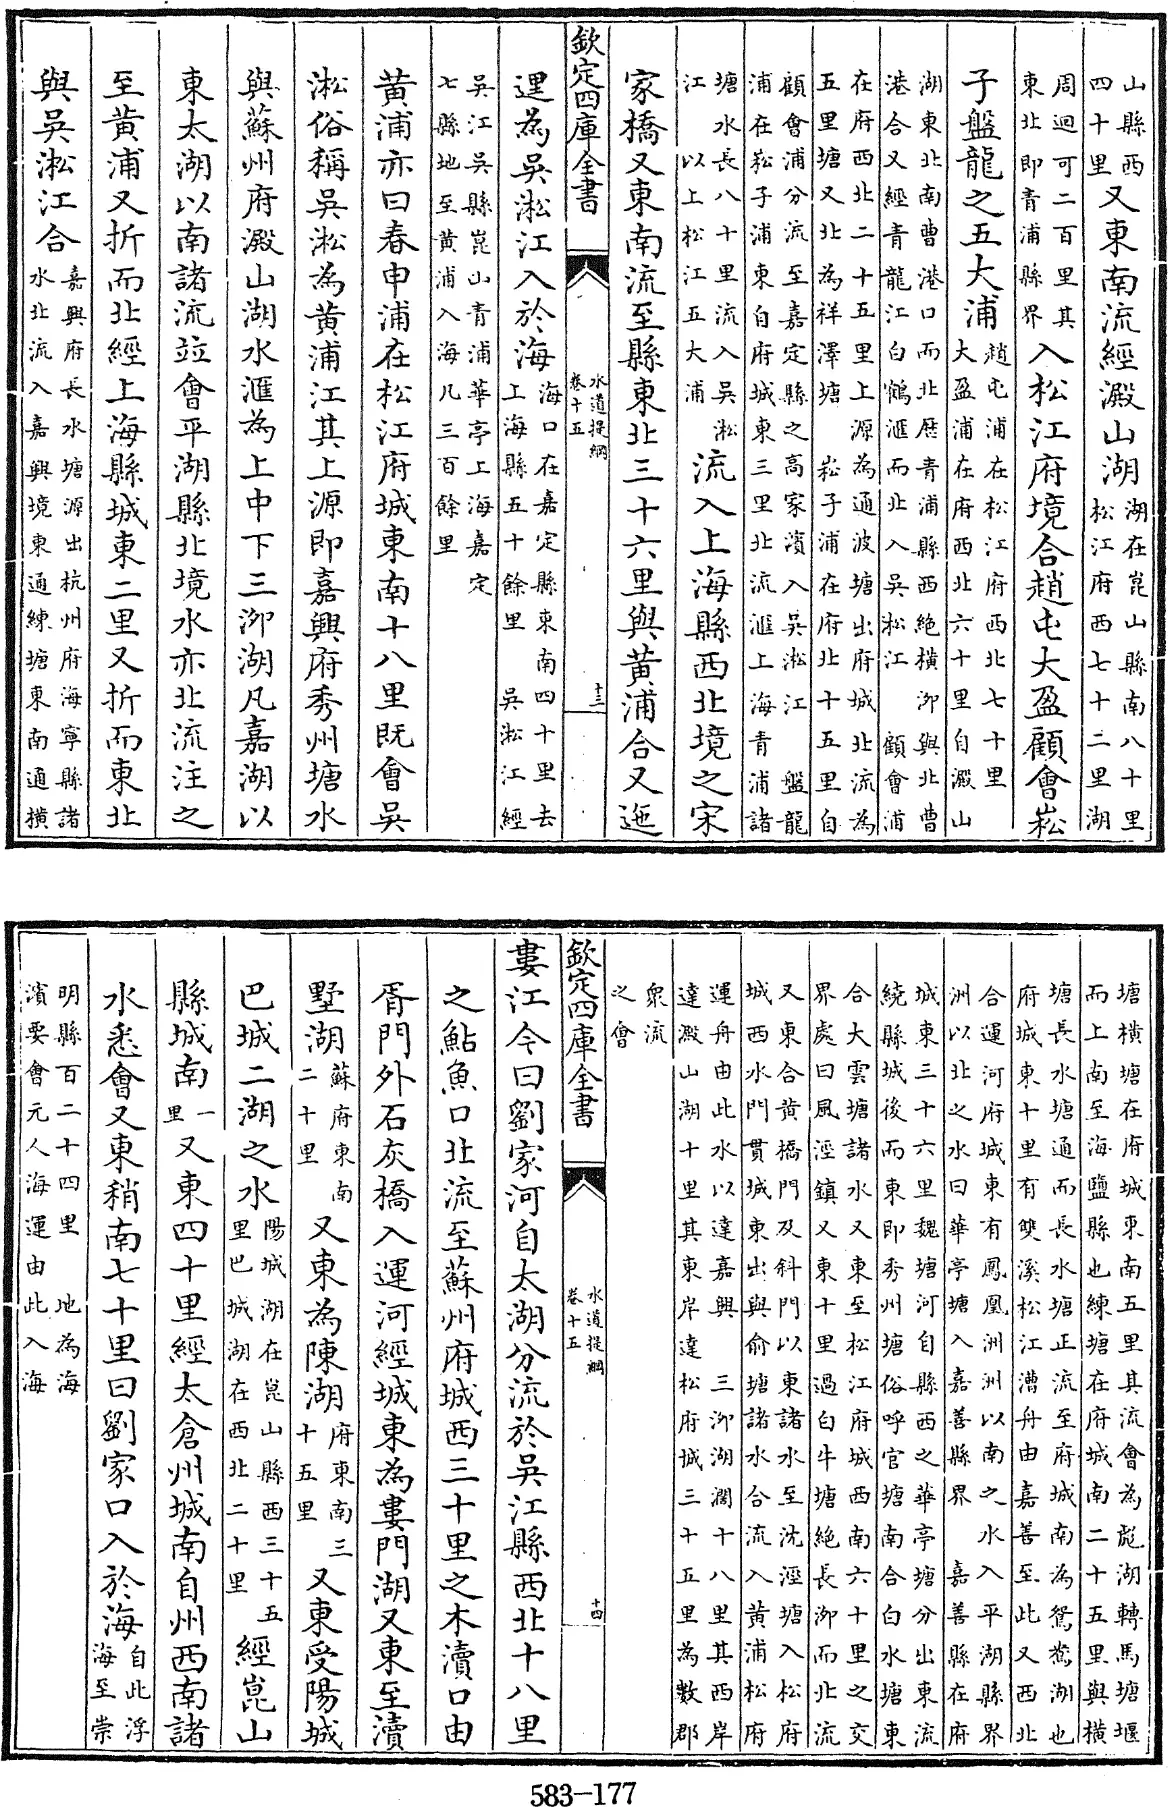 山縣西四十里又東南流經澱山湖湖在崑山縣南八十里松江府西七十二里湖
周迴可二百里其東北即青浦縣界入松江府境合趙屯大盈顧會崧
子盤龍之五大浦趙屯浦在松江府西北七十里大盈浦在府西北六十里自澱山
湖東北南曹港口而北歷青浦縣西絶横泖與北曹
港合又經青龍江白鶴滙而北入吳松江 顧會浦
在府西北二十五里上源為通波塘出府城北流為
五里塘又北為祥澤塘 崧子浦在府北十五里自
顧會浦分流至嘉定縣之高家濱入吳淞江 盤龍
浦在崧子浦東自府城東三里北流滙上海青浦諸
塘水長八十里流入吳淞江 以上松江五大浦流入上海縣西北境之宋
家橋又東南流至縣東北三十六里與黄浦合又迤
欽定四庫全書 水道提綱 卷十五 十三
邐為吳淞江入於海海口在嘉定縣東南四十里去上海縣五十餘里 吳淞江經
吳江吳縣崑山青浦華亭上海嘉定
七縣地至黄浦入海凡三百餘里
黄浦亦曰春申浦在松江府城東南十八里既會吳
淞俗稱吳淞為黄浦江其上源即嘉興府秀州塘水
與蘇州府澱山湖水滙為上中下三泖湖凡嘉湖以
東太湖以南諸流竝會平湖縣北境水亦北流注之
至黄浦又折而北經上海縣城東二里又折而東北
與吳淞江合嘉興府長水塘源出杭州府海寧縣諸水北流入嘉興境東通練塘東南通横
塘横塘在府城東南五里其流會為彪湖轉馬塘堰
而上南至海鹽縣也練塘在府城南二十五里與横
塘長水塘通而長水塘正流至府城南為鴛鴦湖也
府城東十里有雙溪松江漕舟由嘉善至此又西北
合運河府城東有鳳凰洲洲以南之水入平湖縣界
洲以北之水曰華亭塘入嘉善縣界 嘉善縣在府
城東三十六里魏塘河自縣西之華亭塘分出東流
繞縣城後而東即秀州塘俗呼官塘南合白水塘東
合大雲塘諸水又東至松江府城西南六十里之交
界處曰風涇鎮又東十里過白牛塘絶長泖而北流
又東合黄橋門及斜門以東諸水至沈涇塘入松府
城西水門貫城東出與俞塘諸水合流入黄浦松府
運舟由此水以達嘉興 三泖湖濶十八里其西岸
達澱山湖十里其東岸達松府城三十五里為數郡
衆流
之會
欽定四庫全書 水道提綱 卷十五 十四
婁江今曰劉家河自太湖分流於吳江縣西北十八里
之鮎魚口北流至蘇州府城西三十里之木瀆口由
胥門外石灰橋入運河經城東為婁門湖又東至瀆
墅湖蘇府東南二十里又東為陳湖府東南三十五里又東受陽城
巴城二湖之水陽城湖在崑山縣西三十五里巴城湖在西北二十里經崑山
縣城南一里又東四十里經太倉州城南自州西南諸
水悉會又東稍南七十里曰劉家口入於海自此浮海至崇
明縣百二十四里 地為海
濱要會元人海運由此入海
583-177